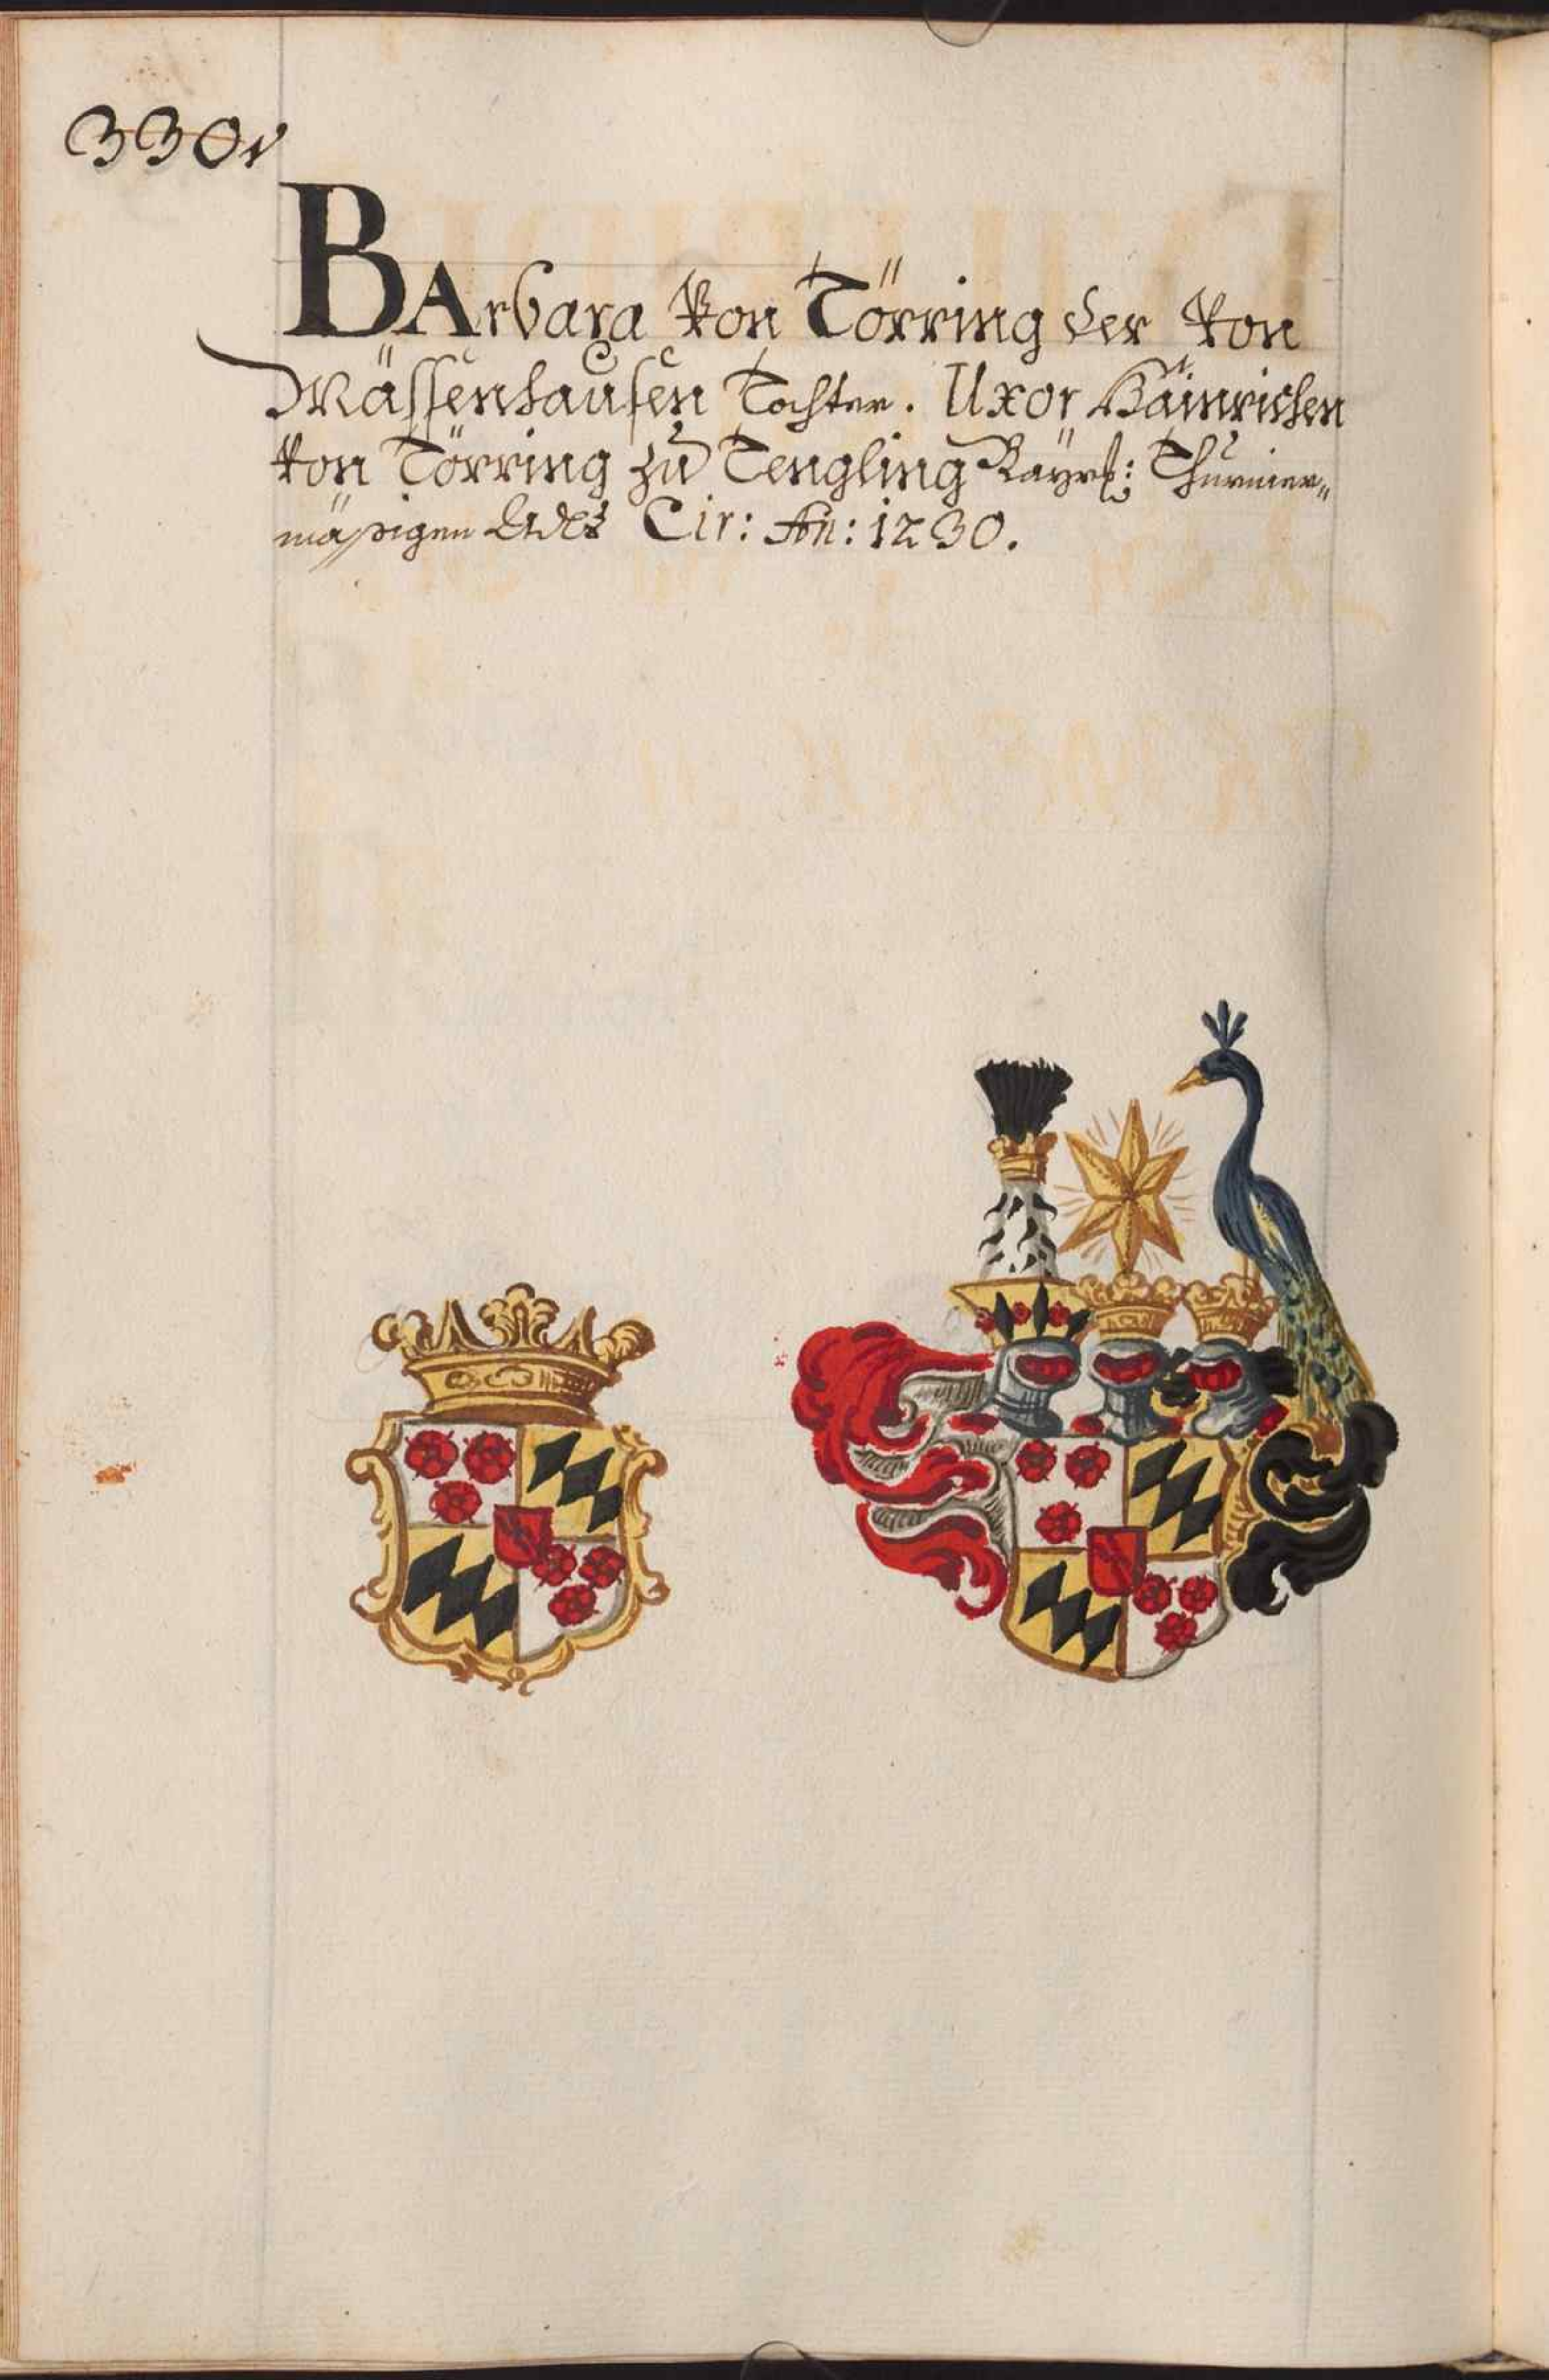 330v
BArbara Von Törring der Von
Mässenhausen Tochter. Uxor Hainrichen
Von Törring zu Tengling Bayrs: Thurnier„
mäßigen Adls Cir: An: 1230.